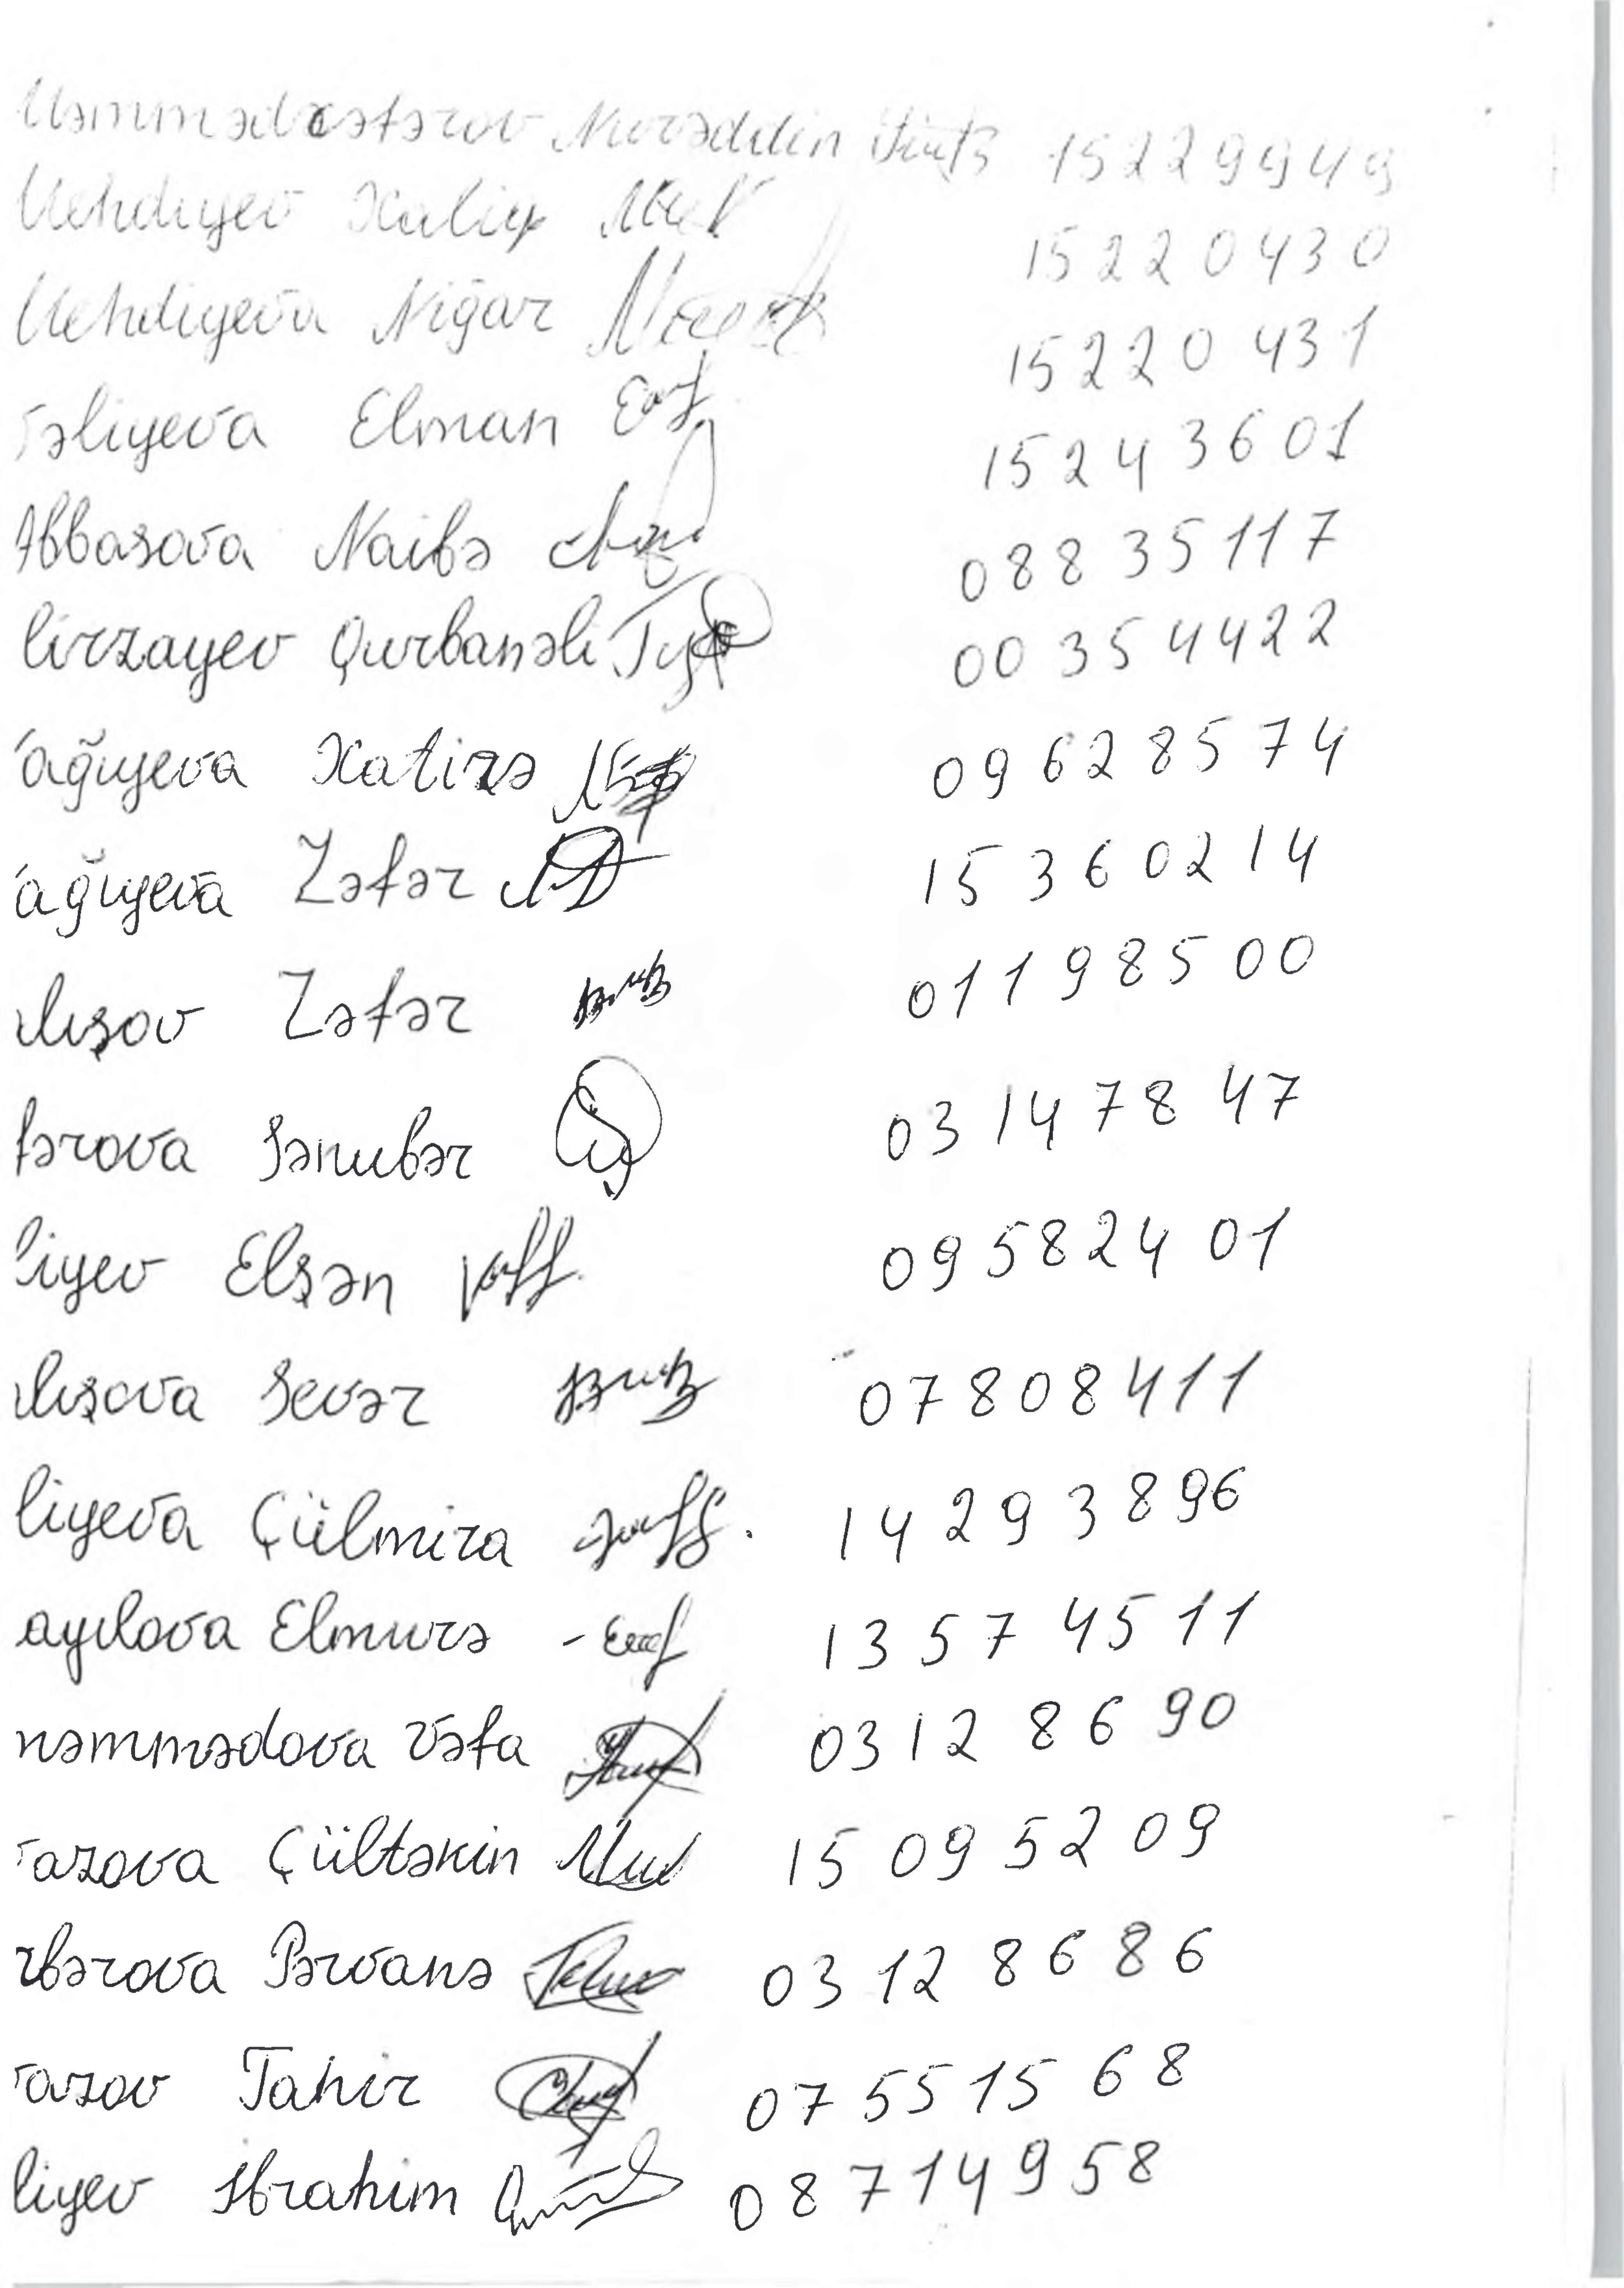 Məmmədcəfərov Nurəddin 15229949
Mehdiyev Xaliq 15220430
Mehdiyeva Nigar 15220431
Vəliyeva Elman 15243601
Abbasova Naibə 08835117
Mirzəyev Qurbanəli 00354422
ağıyeva Xatirə 09628574
ağıyeva Zəfər 15360214
lışov Zəfər 01198500
fərova Sənubər 03147847
liyev Elşən 09582401
lışova Sevər 07808411
liyeva Gülmira 14293896
ayılova Elmurə 13574511
məmmədova Vəfa 03128690
razova Gültəkin 15095209
kbərova Pərvanə 03128686
razov Tahir 07551568
liyev Ibrahim 08714958